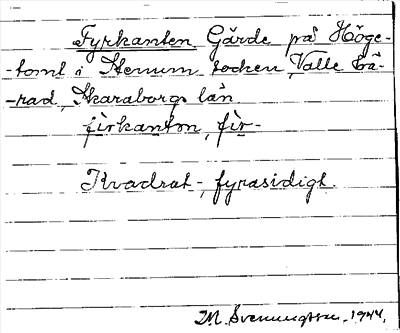 Fyrkanten. Gärde på Höge-
-tomt i Stenum socken, Valle hä-
-rad, Skaraborgs län.
fìrkantǝn, fìr-
Kvadrat-, fyrasidigt.
M. Svenungsson. 1944.